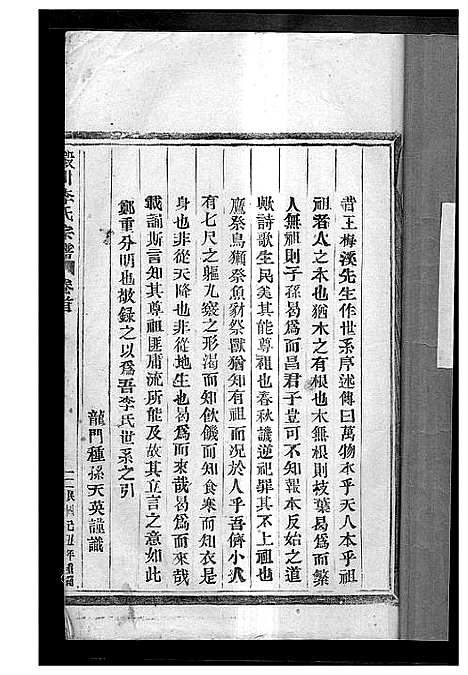 昔王梅溪先生作世系序述傳曰萬物本乎天人本乎祖
祖者人之本也猶木之有根也木無根則枝葉曷爲而繁
人無祖則子孫曷爲而昌君子豈可不知報本反始之道
歟詩歌生民美其能尊祖也春秋譏逆祀罪其不上祖也
鷹祭鳥獺祭魚豺祭獸猶知有祖而况於人乎吾儕小人
有七尺之軀九竅之形渴而知飲饑而知食寒而知衣是
身也非從天降也非從地生也曷爲而來哉曷爲而來哉
載誦斯言知其尊祖匪庸流所能及故其立言之意如此
鄭重分明也敬錄之以爲吾李氏世系之引
龍門種孫天英謹識
川李氏宗譜 卷首
民國己丑年重